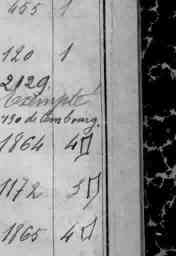 465 1
120 1
2129.
Exempté
190 de Combourg.
1864 4
1172 5
1865 4